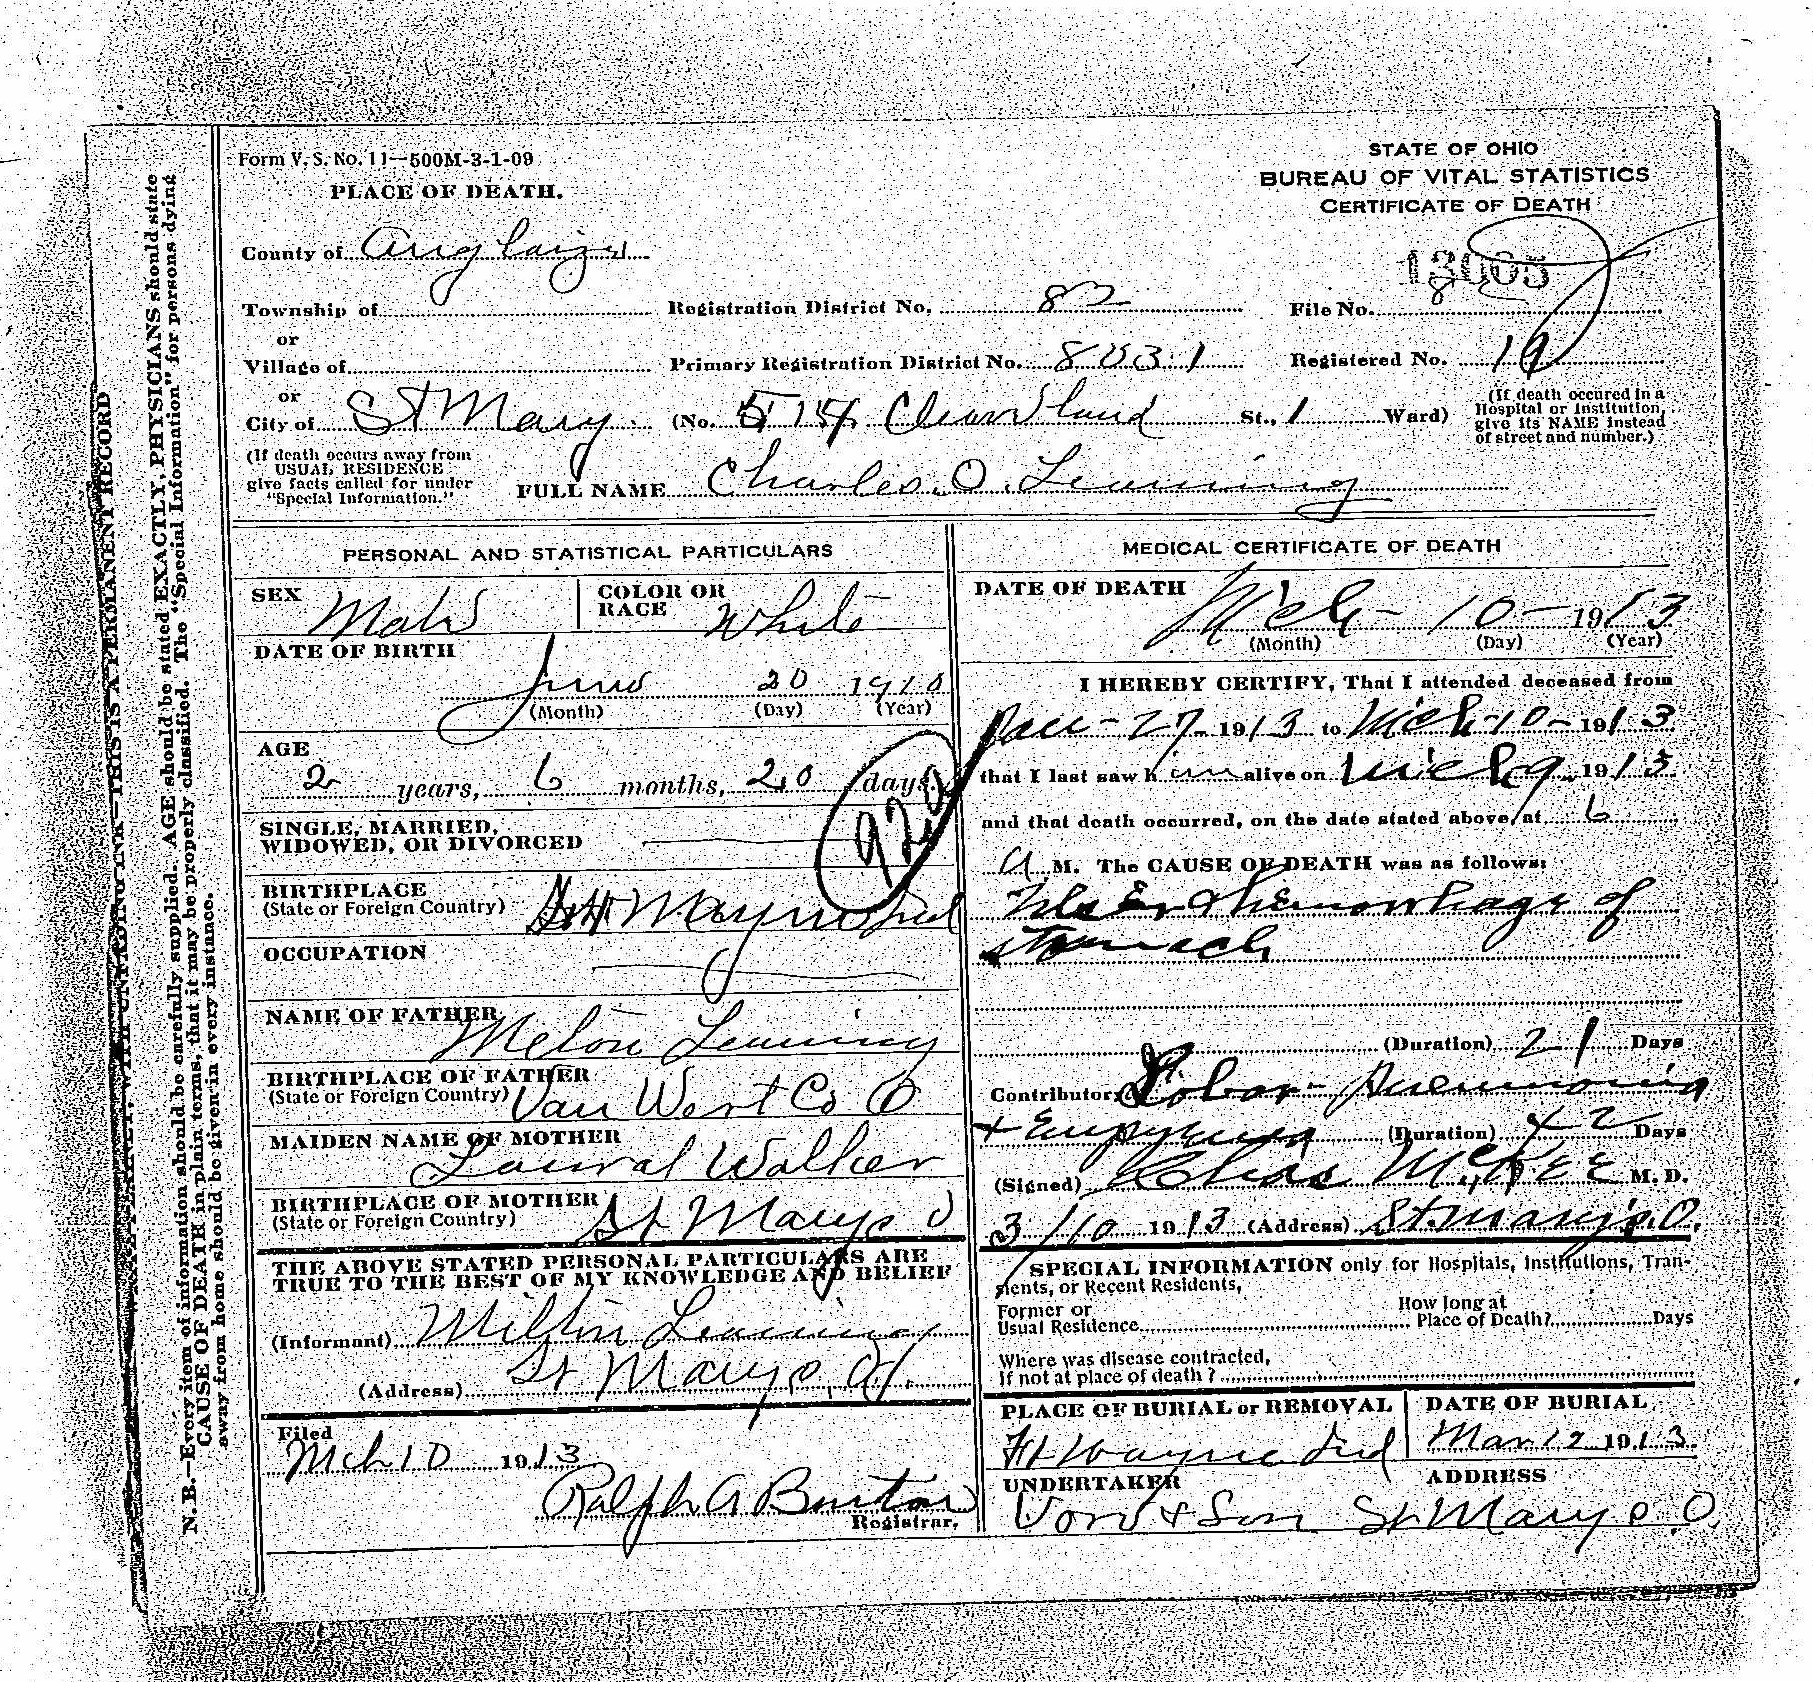 Form V. S. No. 11—500M-3-1-09
STATE OF OHIO
BUREAU OF VITAL STATISTICS
CERTIFICATE OF DEATH
PLACE OF DEATH.
County of Auglaize
13005
Township of Registration District No. 82 File No.
or
Village of Primary Registration District No. 8031 Registered No. 19
or
City of St Mary. (No. 514 Cleaveland St., 1 Ward)
(If death occured in a Hospital or Institution, give its NAME instead of street and number.)
(If death occurs away from
USUAL RESIDENCE
give facts called for under
"Special Information."
FULL NAME Charles. O. Leaming
PERSONAL AND STATISTICAL PARTICULARS
SEX Male COLOR OR RACE White
DATE OF BIRTH
June 20 1910
(Month) (Day) (Year)
AGE
2 years, 6 months, 20 days
92
SINGLE, MARRIED,
WIDOWED, OR DIVORCED
BIRTHPLACE
(State or Foreign Country) Ft Wayne Ind
OCCUPATION
NAME OF FATHER Melon Leaming
BIRTHPLACE OF FATHER
(State or Foreign Country) Van Wert Co O
MAIDEN NAME OF MOTHER
Laural Walker
BIRTHPLACE OF MOTHER
(State or Foreign Country) St Marys O
THE ABOVE STATED PERSONAL PARTICULARS ARE
TRUE TO THE BEST OF MY KNOWLEDGE AND BELIEF
(Informant) Milton Leaming
(Address) St Marys, O.
Filed
Mch 10 1913
Ralph A Burton
Registrar.
MEDICAL CERTIFICATE OF DEATH
DATE OF DEATH
Mch - 10 - 1913
(Month) (Day) (Year)
I HEREBY CERTIFY, That I attended deceased from
Jan - 27 - 1913 to Mch - 10 - 1913
that I last saw him alive on Mch 9 1913
and that death occurred, on the date stated above, at 6
A M. The CAUSE OF DEATH was as follows:
Ulcer & Hemorrhage of
stomach
(Duration) 21 Days
Contributory Lobar - Pneumonia
+ Empyema (Duration) 42 Days
(Signed) Chas McKEE M. D.
3/10 1913 (Address) St. Mary's. O.
SPECIAL INFORMATION only for Hospitals, Institutions, Tran-
sients, or Recent Residents,
Former or
Usual Residence
How long at
Place of Death? Days
Where was disease contracted,
If not at place of death?
PLACE OF BURIAL or REMOVAL DATE OF BURIAL
Ft Wayne Ind Mar 12 1913.
UNDERTAKER ADDRESS
& Son St Marys. O.
N. B.—Every item of information should be carefully supplied. AGE should be stated EXACTLY, PHYSICIANS should state
CAUSE OF DEATH in plain terms, that it may be properly classified. The "Special Information" for persons dying
away from home should be given in every instance.
WRITE PLAINLY, WITH UNFADING INK—THIS IS A PERMANENT RECORD